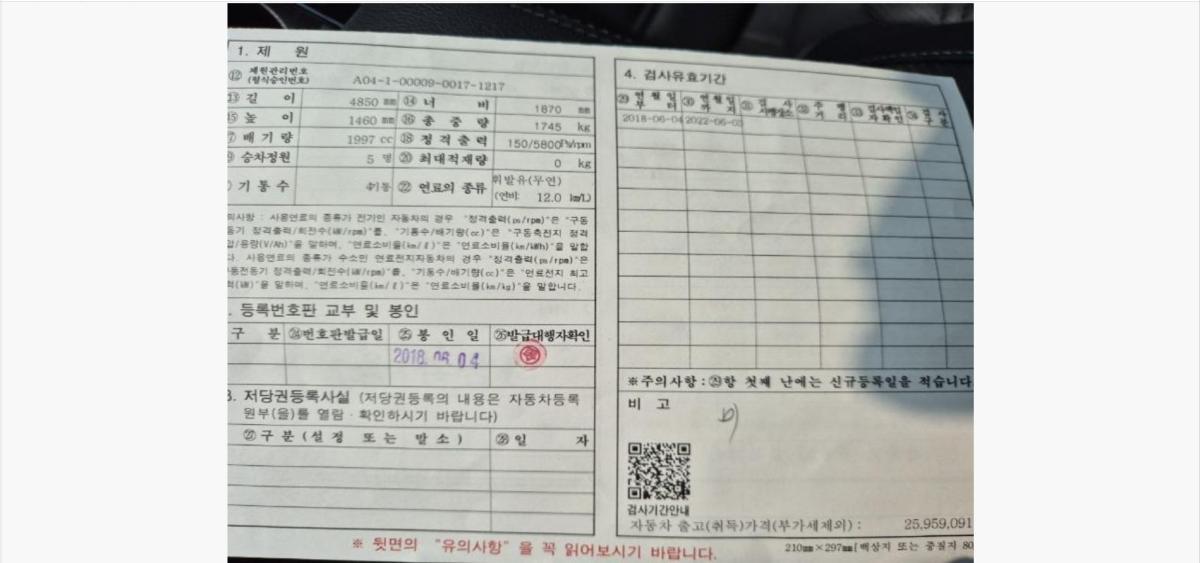 1. 제 원
⑫ 제원관리번호
(형식승인번호) A04-1-00009-0017-1217
⑬ 길 이 4850 mm ⑭ 너 비 1870 mm
⑮ 높 이 1460 mm ⑯ 총 중 량 1745 kg
⑰ 배 기 량 1997 cc ⑱ 정 격 출 력 150/5800Ps/rpm
⑲ 승차정원 5 명 ⑳ 최대적재량 0 kg
기 통 수 4기통 ㉒ 연료의 종류 휘발유(무연)
(연비: 12.0 km/L)
의사항 : 사용연료의 종류가 전기인 자동차의 경우 "정격출력(ps/rpm)"은 "구동
동기 정격출력/회전수(kW/rpm)"를, "기통수/배기량(cc)"은 "구동축전지 정격
압/용량(V/Ah)"을 말하며, "연료소비율(km/ℓ)"은 "연료소비율(km/kWh)"을 말합
다. 사용연료의 종류가 수소인 연료전지자동차의 경우 "정격출력(ps/rpm)"은
동전동기 정격출력/회전수(kW/rpm)"를, "기통수/배기량(cc)"은 "연료전지 최고
력(kW)"을 말하며, "연료소비율(km/ℓ)"은 "연료소비율(km/kg)"을 말합니다.
. 등록번호판 교부 및 봉인
구 분 ㉔번호판발급일 ㉕봉 인 일 ㉖발급대행자확인
2018. 06. 04
3. 저당권등록사실 (저당권등록의 내용은 자동차등록
원부(을)를 열람·확인하시기 바랍니다)
㉗구 분 ( 설 정 또 는 말 소 ) ㉘일 자
4. 검사유효기간
㉙ 연 월 일 부 터 ㉚ 연 월 일 까 지 ㉛ 검 사 시행장소 ㉜ 주 행 거 리 ㉝ 검사책임 자확인 ㉞ 검 사 구 분
2018-06-04 2022-06-03
※주의사항:㉙항 첫째 난에는 신규등록일을 적습니다
비 고
검사기간안내
자동차 출고(취득)가격(부가세제외) : 25,959,091
※ 뒷면의 "유의사항" 을 꼭 읽어보시기 바랍니다.
210㎜×297㎜[백상지 또는 중질지 80